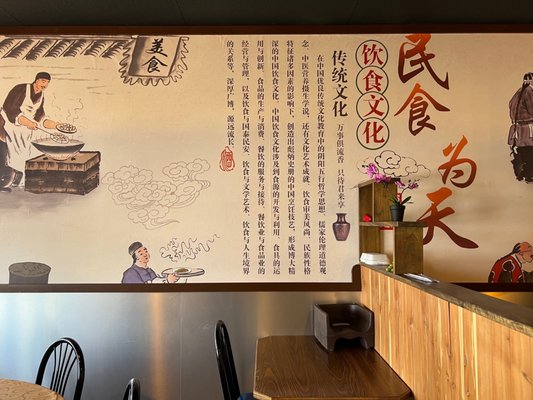 民食
为天
饮食文化
传统文化
万事俱流香 只待君来享
在中国优良传统文化教育中的阴阳五行哲学思想、儒家伦理道德观
念、中医营养摄生学说,还有文化艺术成就、饮食审美风尚、民族性格
特征诸多因素的影响下,创造出彪炳史册的中国烹饪技艺,形成博大精
深的中国饮食文化。中国饮食文化涉及到食源的开发与利用、食具的运
用与创新、食品的生产与消费、餐饮的服务与接待、餐饮业与食品业的
经营与管理,以及饮食与国泰民安、饮食与文学艺术、饮食与人生境界
的关系等,深厚广博,源远流长。
美食